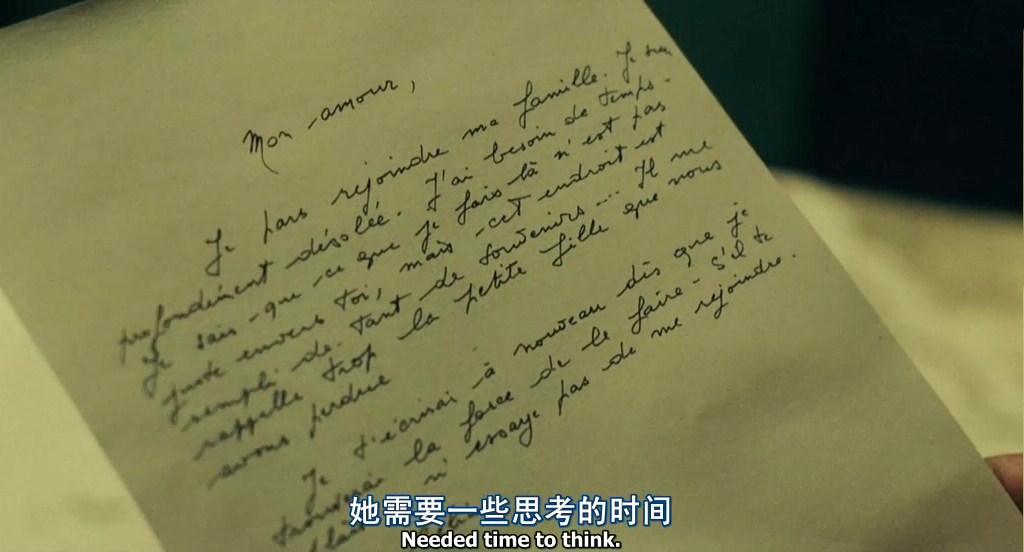 Mon amour,
Je pars rejoindre ma famille. Je suis
profondément désolée. J'ai besoin de temps.
Je sais que ce que je fais là n'est pas
juste envers toi, mais cet endroit est
rempli de tant de souvenirs... Il me
rappelle trop la petite fille que nous
avons perdue
Je t'écrirai à nouveau dès que je
trouverai la force de le faire - s'il te
plaît n'essaye pas de me rejoindre.
她需要一些思考的时间
Needed time to think.